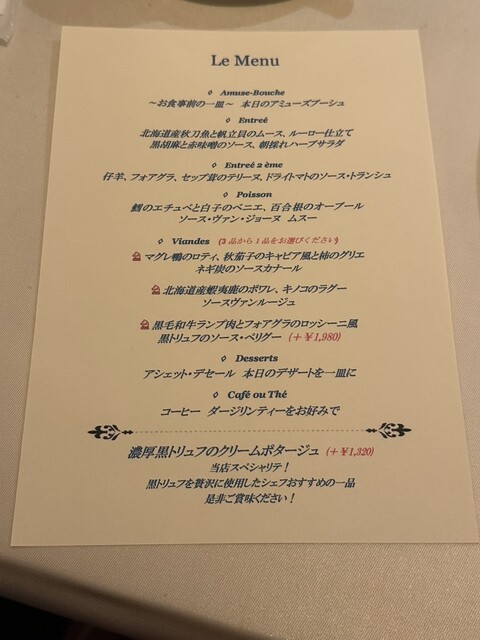 Le Menu
◊ Amuse-Bouche
～お食事前の一皿～ 本日のアミューズブーシュ
◊ Entreé
北海道産秋刀魚と帆立貝のムース、ルーロー仕立て
黒胡麻と赤味噌のソース、朝採れハーブサラダ
◊ Entreé 2 ème
仔羊、フォアグラ、セップ茸のテリーヌ、ドライトマトのソース・トランシュ
◊ Poisson
鱈のエチュベと白子のベニエ、百合根のオーブール
ソース・ヴァン・ジョーヌ ムスー
◊ Viandes (3品から1品をお選びください)
マグレ鴨のロティ、秋茄子のキャビア風と柿のグリエ
ネギ炭のソースカナール
北海道産蝦夷鹿のポワレ、キノコのラグー
ソースヴァンルージュ
黒毛和牛ランプ肉とフォアグラのロッシーニ風
黒トリュフのソース・ペリグー (+¥1,980)
◊ Desserts
アシェット・デセール 本日のデザートを一皿に
◊ Café ou Thé
コーヒー ダージリンティーをお好みで
濃厚黒トリュフのクリームポタージュ (+¥1,320)
当店スペシャリテ！
黒トリュフを贅沢に使用したシェフおすすめの一品
是非ご賞味ください！